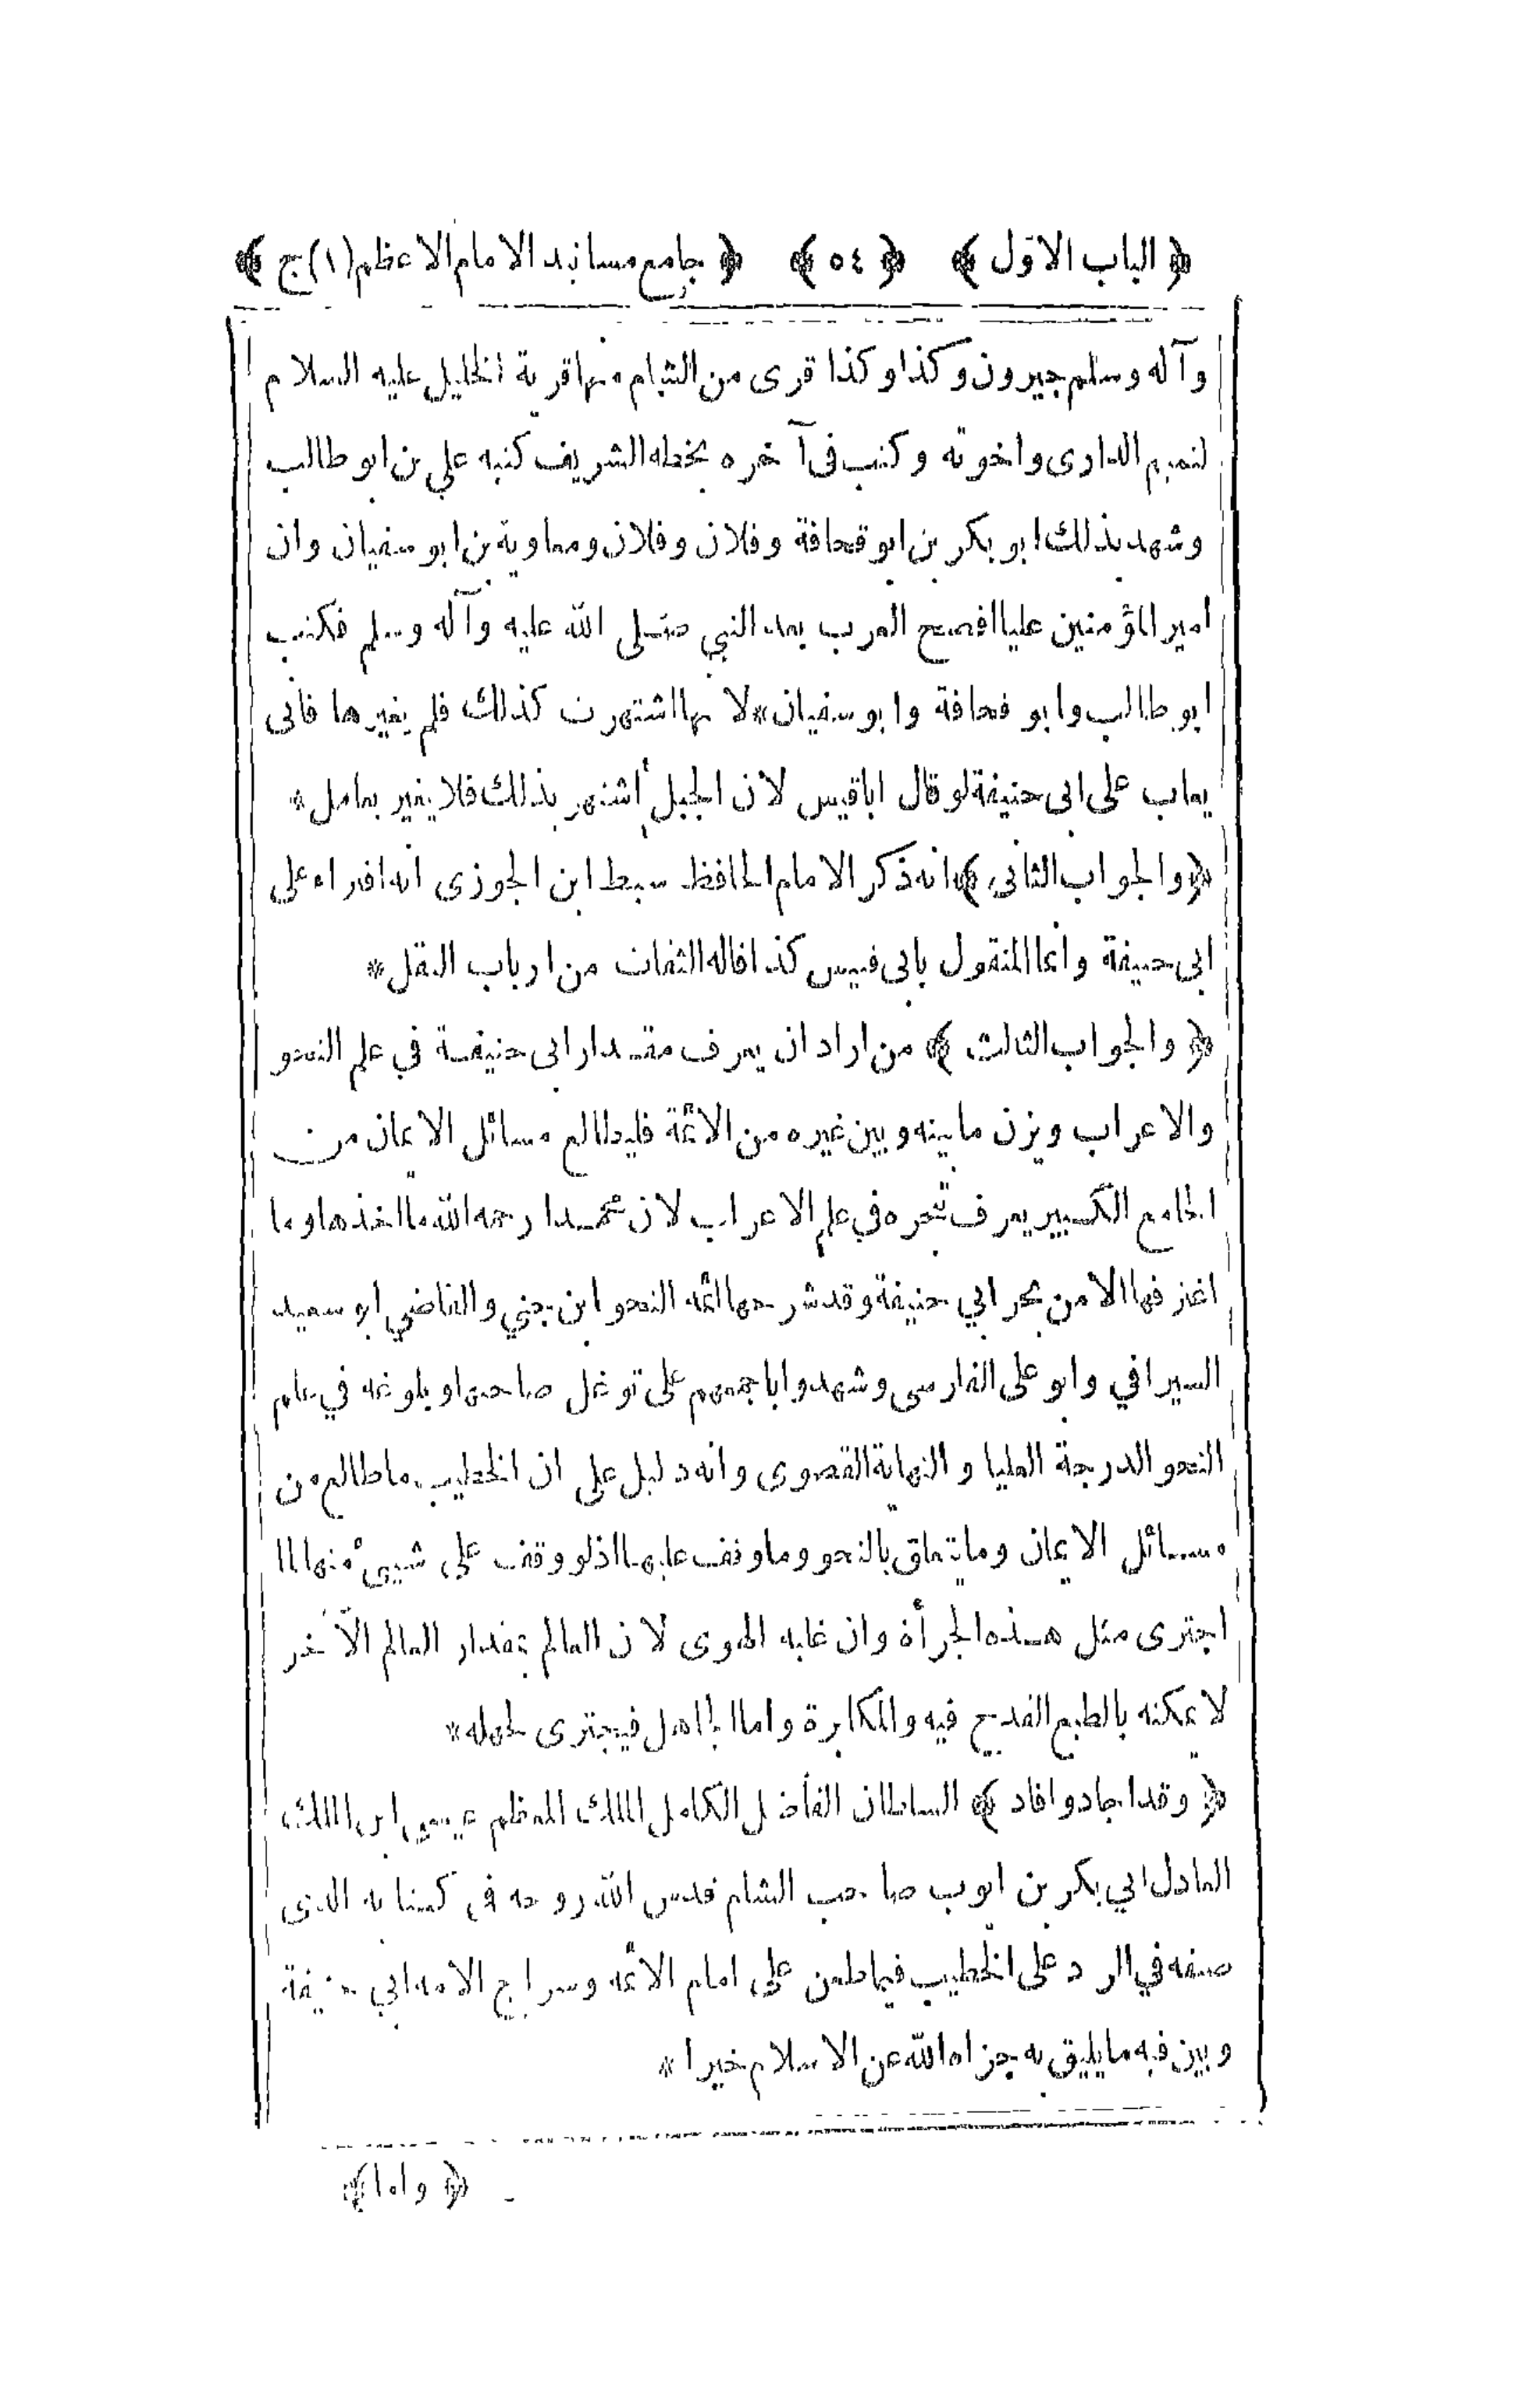 ﴿ الباب الاوّل ﴾ ﴿ ٥٤ ﴾ ﴿ جامع مسانيد الامام الاعظم (١) ج ﴾
وآله وسلم جيرون وكذا وكذا قرى من الشام منها قرية الخليل عليه السلام
لتميم الدارى واخوته وكتب فى آخره بخطه الشريف كتبه علي بن ابو طالب
وشهد بذلك ابو بكر بن ابو قحافة وفلان وفلان ومعاوية بن ابو سفيان وان
امير المؤمنين عليا افصح العرب بعد النبي صلى الله عليه وآله وسلم فكتب
ابو طالب وابو قحافة وابو سفيان * لانها اشتهرت كذلك فلم يغيرها فانى
يعاب على ابى حنيفة لو قال اباقيس لان الجبل أشتهر بذلك فلا يغير بعامل *
﴿ والجواب الثانى ﴾ انه ذكر الامام الحافظ سبط ابن الجوزى انه افتراء على
ابى حنيفة وانما المنقول بابى قبيس كذا قاله الثقات من ارباب النقل *
﴿ والجواب الثالث ﴾ من اراد ان يعرف مقدار ابى حنيفة في علم النحو
والاعراب ويزن ما بينه وبين غيره من الائمة فليطالع مسائل الايمان من
الجامع الكبير يعرف تبحره فى علم الاعراب لان محمدا رحمه الله ما اخذها وما
اغترفها الا من بحر ابي حنيفة وقد شرحها ائمه النحو ابن جني والقاضي ابو سعيد
السيرافي وابو على الفارسى وشهدوا باجمعهم على توغل صاحبها وبلوغه في علم
النحو الدرجة العليا والنهاية القصوى وانه دليل على ان الخطيب ما طالع من
مسائل الايمان وما يتعلق بالنحو وما وقف عليها اذلو وقف على شيئ منها لما
اجترى مثل هذه الجرأة وان غلبه الهوى لان العالم بمقدار العالم الآخر
لا يمكنه بالطبع القدح فيه والمكابرة واما الجاهل فيجترى لجهله *
﴿ وقد اجاد وافاد ﴾ السلطان الفاضل الكامل الملك المعظم عيسى ابن الملك
العادل ابي بكر بن ايوب صاحب الشام قدس الله روحه فى كتابه الذى
صنفه في الرد على الخطيب فيما طعن على امام الائمه وسراج الامه ابي حنيفة
وبين فيه ما يليق به جزاه الله عن الاسلام خيرا *
﴿ واما ﴾